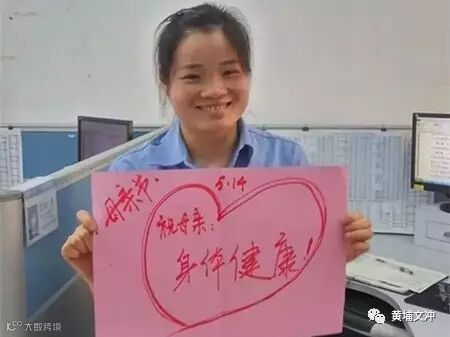 母亲节.
5.14
祝母亲:
身体健康!
黄埔文冲
大数跨境